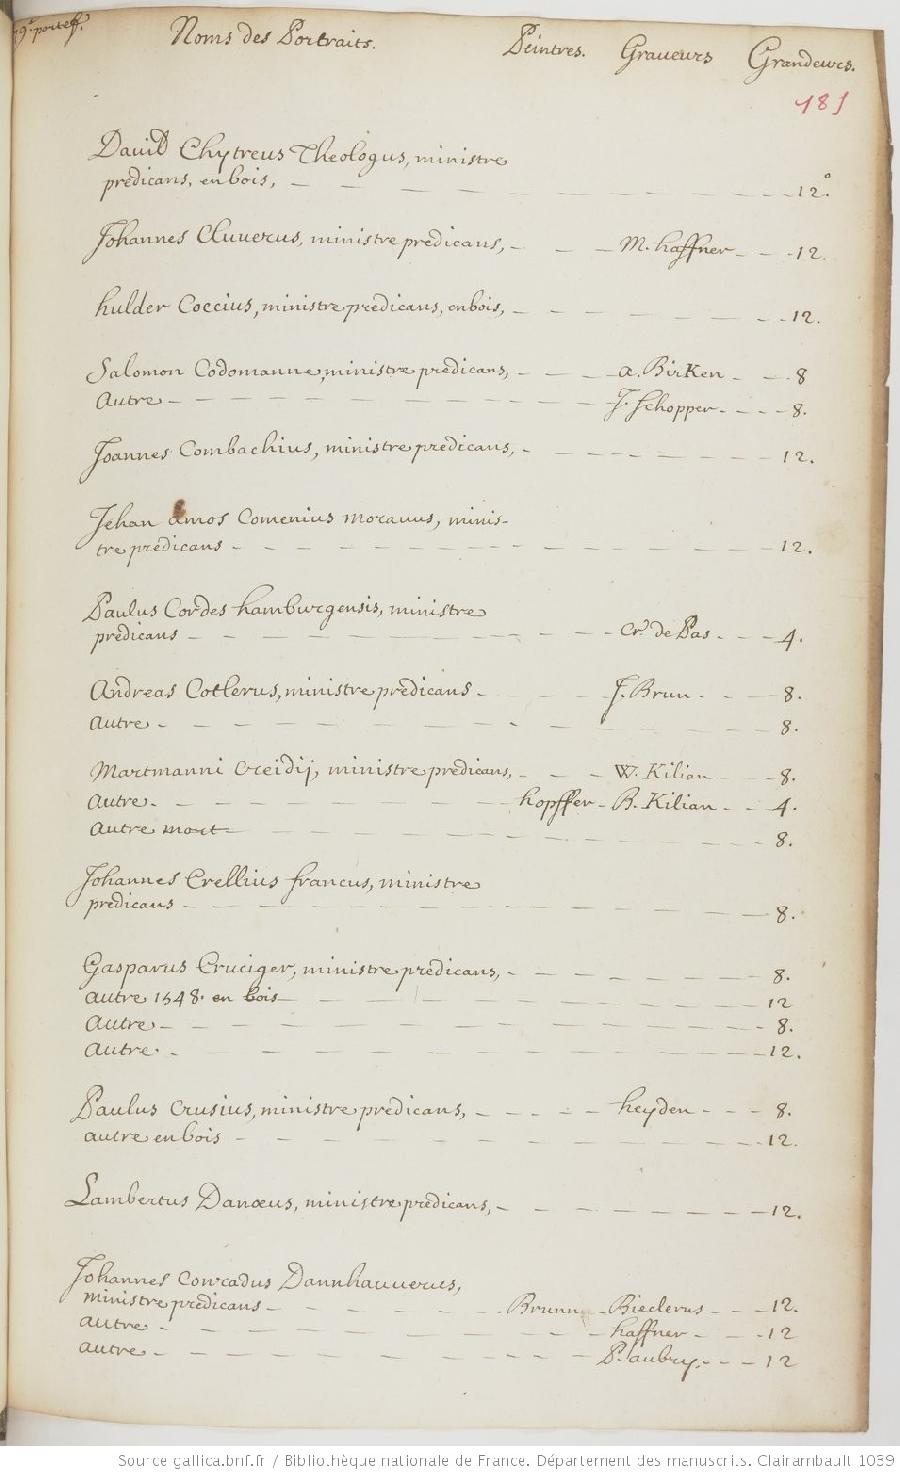 9e. portef.
Noms des Portraits. Peintres. Graveurs Grandeurs.
181
David Chytreus Theologus, ministre
predicans, en bois, 12°.
Johannes Cluverus, ministre predicans, M. haffner 12.
hulder Coccius, ministre predicans, en bois, 12.
Salomon Codomanne, ministre predicans, a. Birken 8
Autre J. Schopper 8.
Joannes Combachius, ministre predicans, 12.
Jehan amos Comenius moravus, minis-
tre predicans 12.
Paulus Cordes hamburgensis, ministre
predicans cr. de Pas 4.
Andreas Cotlerus, ministre predicans J. Brun 8.
autre 8.
Martmanni creidij, ministre predicans, W. Kilian 8.
autre hopffer B. Kilian 4.
autre mort 8.
Johannes Crellius francus, ministre
predicans 8.
Gasparus Cruciger, ministre predicans, 8.
autre 1548. en bois 12
autre 8.
autre 12.
Paulus crusius, ministre predicans, heyden 8.
autre en bois 12.
Lambertus Danœus, ministre predicans, 12.
Johannes Conradus Dannhauverus,
ministre predicans Brunn Biederus 12.
autre haffner 12
autre P. aubry 12
Source gallica.bnf.fr / Bibliothèque nationale de France. Département des manuscrits. Clairambault 1039